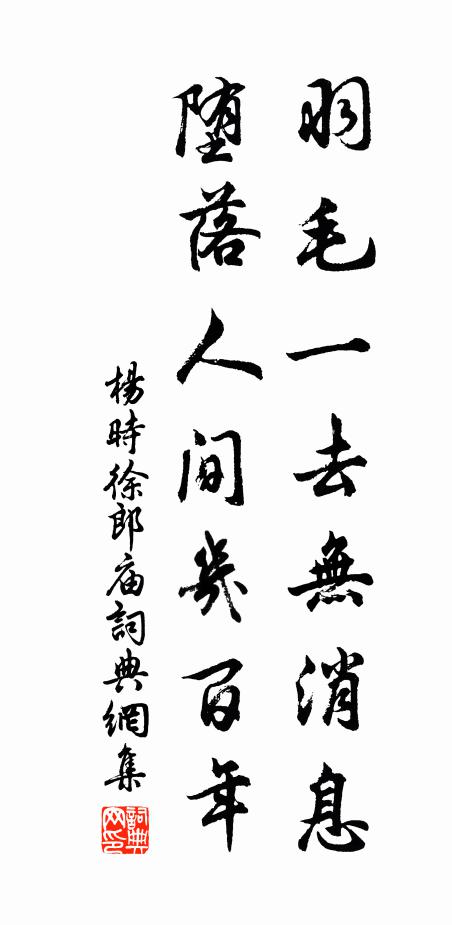 羽毛一去無消息
堕落人间幾百年
楊時徐郎庙詞典網集
詞典网印